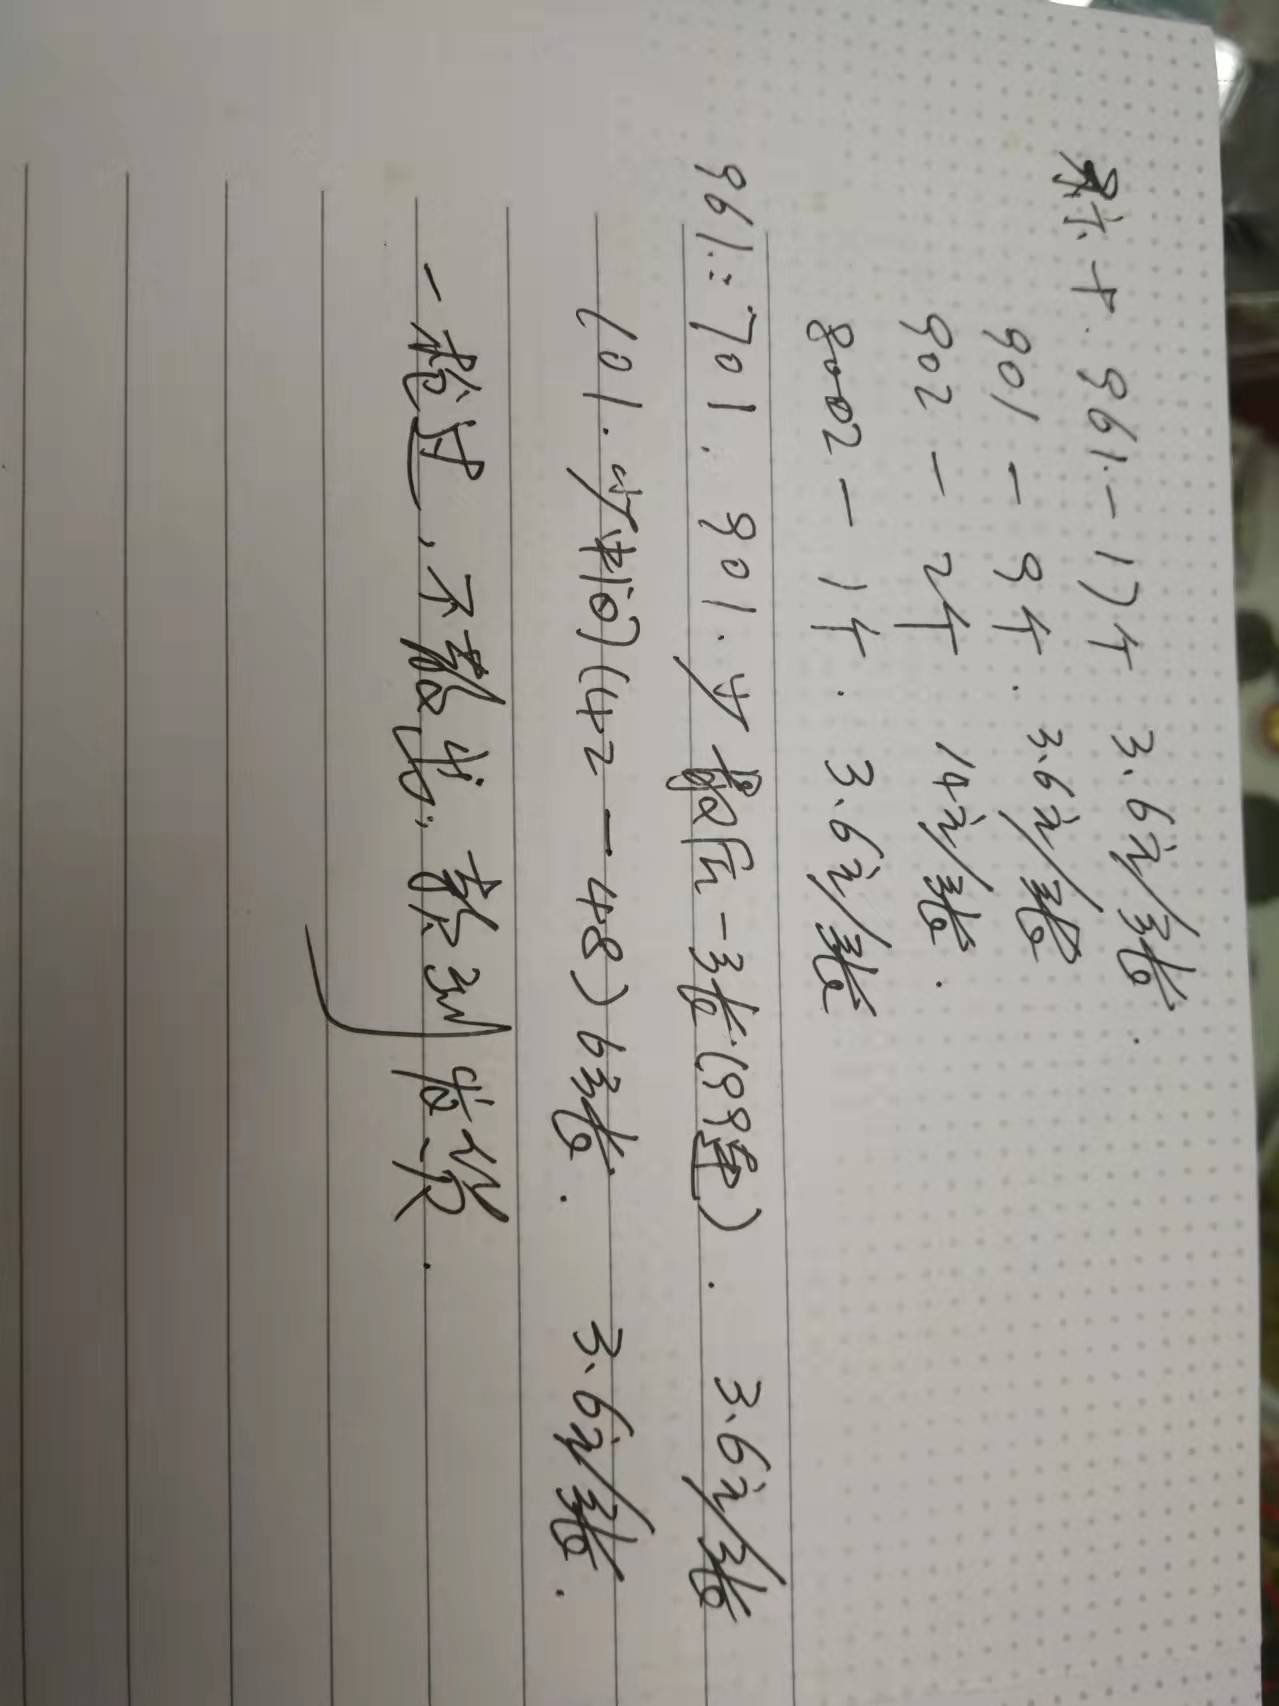 整千. 961.-17千 3.6元/张.
901-9千. 3.6元/张
902-2千 14元/张.
8002-1千. 3.6元/张
961:701.901.少最后一张(99连). 3.6元/张
101.少中间(42-48)6张. 3.6元/张.
一枪过,不散出,款到发货.